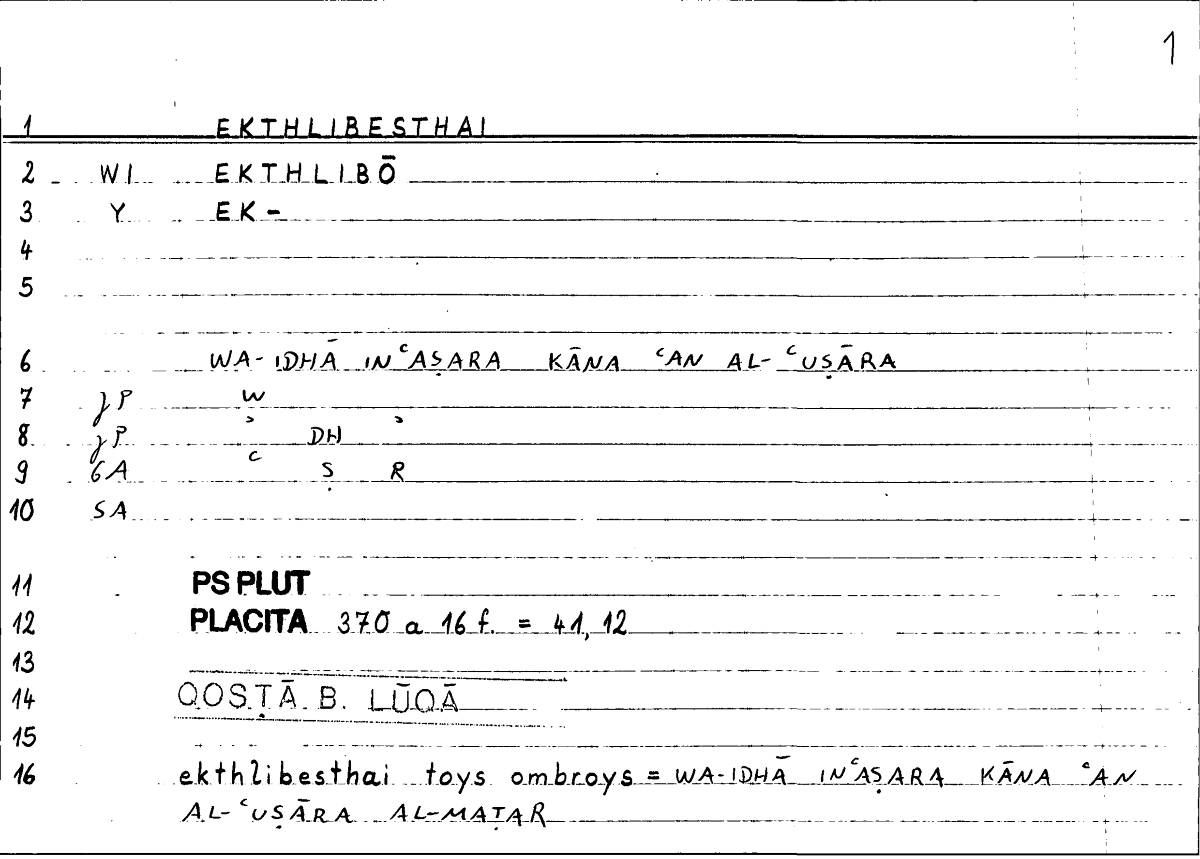 1
1 EKTHLIBESTHAI
2 WI EKTHLIBŌ
3 Y EK-
4
5
6 WA-IDHĀ INʿAṢARA KĀNA ʿAN AL-ʿUṢĀRA
7 γP W
8 γP ʾ DH ʾ
9 6A ʿ Ṣ R
10 SA
11 PS PLUT
12 PLACITA 370 a 16 f. = 41, 12
13
14 QOSṬĀ B. LŪQĀ
15
16 ekthlibesthai toys ombroys = WA-IDHĀ INʿAṢARA KĀNA ʿAN
AL-ʿUṢĀRA AL-MAṬAR